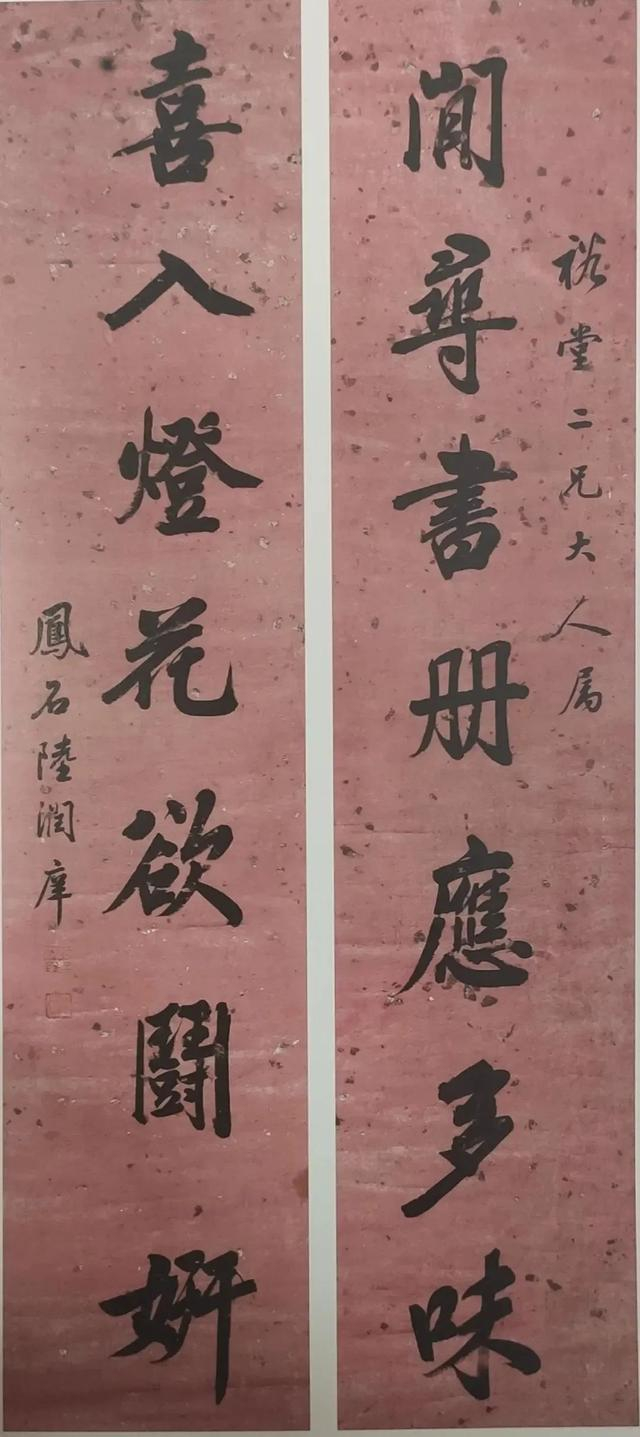 裕堂二兄大人属
閒尋書册應多味
喜入燈花欲鬬妍
鳳石陸潤庠